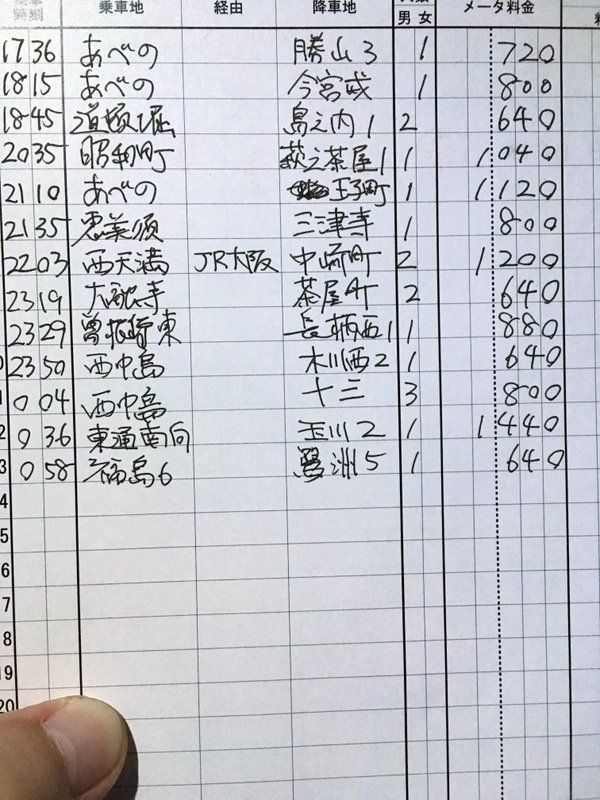 乗車地 経由 降車地 男 女 メータ料金
17 36 あべの 勝山3 1 720
18 15 あべの 今宮戎 1 800
18 45 道頓堀 島之内1 2 640
20 35 昭和町 萩之茶屋1 1 1040
21 10 あべの 王子町 1 1120
21 35 恵美須 三津寺 1 800
22 03 西天満 JR大阪 中崎町 2 1200
23 19 大融寺 茶屋町 2 640
23 29 曽根崎東 長柄西1 1 880
23 50 西中島 木川西2 1 640
0 04 西中島 十三 3 800
2 0 36 東通南向 玉川2 1 1440
3 0 58 福島6 鷺洲5 1 640
4
5
6
7
8
19
20